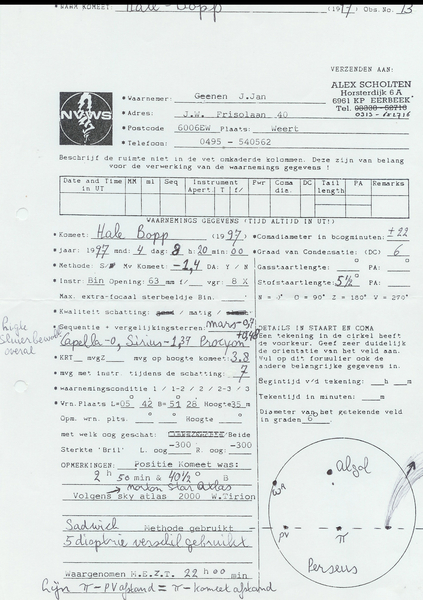 WAKR KOMEET: Hale-Bopp (1997) Obs.No. 13
VERZENDEN AAN:
ALEX SCHOLTEN
Horsterdijk 6 A
6961 KP EERBEEK
Tel.
NVWS
*Waarnemer: Geenen J.Jan
*Adres: J.W. Frisolaan 40
*Postcode 6006EW Plaats: Weert
*Telefoon: 0495 - 540562
Beschrijf de ruimte niet in de vet omkaderde kolommen. Deze zijn van belang
voor de verwerking van de waarnemings gegevens !
Date and Time in UT MM m1 Seq Instrument Apert T f/ Pwr Coma dia. DC Tail length PA Remarks
WAARNEMINGS GEGEVENS (TIJD ALTIJD IN UT!)
*Komeet: Hale Bopp (1997)
*jaar: 1997 mnd: 4 dag: 8 h: 20 min: 00
*Methode: S/ Mv Komeet: -1,4 DA: Y / N
*Instr: Bin Opening: 63 mm f/ vgr: 8 X
Max. extra-focaal sterbeeldje Bin.
*Kwaliteit schatting: / matig /
*Sequentie + vergelijkingsterren: mars-0,7
Capella-0, Sirius-1,37 Procyon +0,48
hinder
Sluierbewolk
overal
*KRT mvgz mvg op hoogte komeet: 3.8
*mvg met instr. tijdens de schatting: 7
*waarnemingsconditie 1 / 1-2 / 2 / 2-3 / 3
*Wrn.Plaats L=05° 42 B=51° 28 Hoogte 35 m
Opm. wrn. plts. Hoogte
met welk oog geschat: /Beide
Sterkte 'Bril' L. oog: -300 R. oog: -300
OPMERKINGEN: Positie Komeet was:
2 h 50 min & 40½ ° B
norton Star Atlas
Volgens sky atlas 2000 W.Tirion
Sadwick Methode gebruikt
5 dioptrie verschil gebruikt
Waargenomen M.E.Z.T. 22 h 00 min
Lijn π-PV afstand = π-komeet afstand
*Comadiameter in boogminuten: ±22
*Graad van Condensatie: (DC) 6
Gasstaartlengte: ° PA:
*Stofstaartlengte: 5½° PA:
N = 0° O = 90° Z = 180° V = 270°
DETAILS IN STAART EN COMA
Een tekening in de cirkel heeft
de voorkeur. Geef zeer duidelijk
de orientatie van het veld aan.
Vul op dit formulier ook de
andere belangrijke gegevens in.
Begintijd v/d tekening: h m
Tekentijd in minuten:
Diameter van het getekende veld
in graden 6°
Algol
ω
PV
π
Perseus